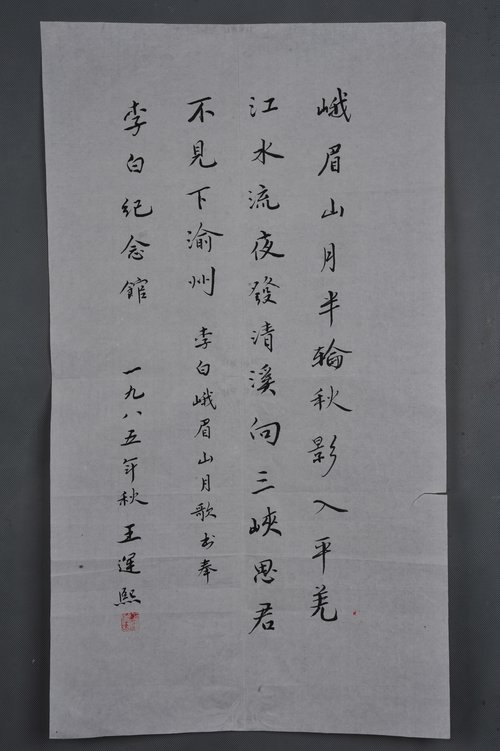 峨眉山月半輪秋影入平羌
江水流夜發清溪向三峽思君
不見下渝州 李白峨眉山月歌书奉
李白紀念館 一九八五年秋 王運熙